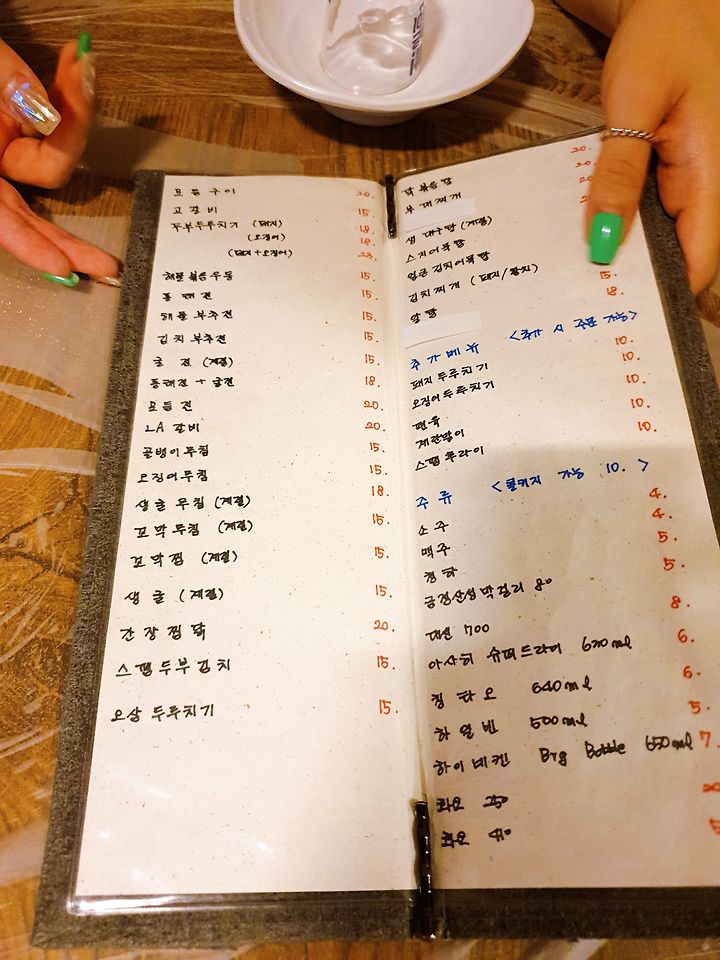 모듬구이 20.
고갈비 15.
두부두루치기 (돼지) 18.
(오징어) 18.
(돼지+오징어) 23.
해물볶음우동 15.
동태전 15.
해물 부추전 15.
김치 부추전 15.
굴전 (계절) 15.
동태전 + 굴전 18.
모듬전 20.
LA 갈비 20.
골뱅이무침 15.
오징어무침 15.
생굴무침 (계절) 18.
꼬막무침 (계절) 15.
꼬막찜 (계절) 15.
생굴 (계절) 15.
간장찜닭 20.
스팸두부김치 15.
오삼두루치기 15.
닭볶음탕 20.
부대찌개 20.
생대구탕 (계절) 20.
스지어묵탕
얼큰김치어묵탕
김치찌개 (돼지/참치) 15.
알탕 18.
추가메뉴 <추가 시 주문 가능>
돼지두루치기 10.
오징어두루치기 10.
편육 10.
계란말이 10.
스팸후라이 10.
주류 <콜키지 가능 10.>
소주 4.
맥주 4.
청하 5.
금정산성막걸리 8º 5.
대선 700 8.
아사히 슈퍼드라이 630ml 6.
칭타오 640ml 6.
하얼빈 500ml 5.
하이네켄 Big Bottle 650ml 7.
화요 25º 20
화요 41º